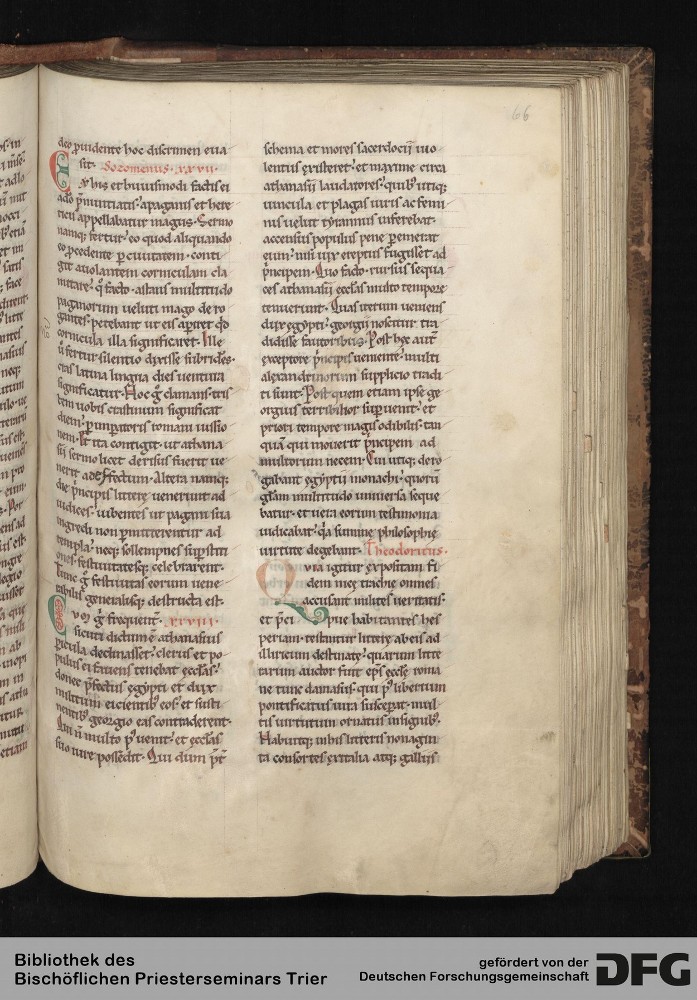 66
deo p̄uidente hoc discrimen eua
sit. Sozomenus. xxvii.
Ex his et huiusmodi factis ei
ado p̄nuntiatis. a paganis et here
ticis appellabatur magus. Sermo
namq; fertur. eo quod aliquando
eo p̄cedente p̄ ciuitatem. conti
git auolantem corniculam cla
mitare. q̄ facto. astans multitudo
paganorum ueluti mago de ro
gantes. petebant ut eis aperiret qd̄
cornicula illa significaret. Ille
ū fertur silentio dixisse subridēs.
cras latina lingua dies uentura
significatur. Hoc g̊ clamans. tris
tem uobis crastinum significat
diem. p̄ imperatoris romani iussio
nem. Et ita contigit. ut athana
sii sermo licet derisus fuerit ue
nerit ad effectum. Altera namq;
die p̄ncipis littere uenerunt ad
iudices. iubentes ut pagani sua
ingredi non p̄mitterentur ad
templa. neq; sollempnes sup̄stiti
ones. festiuitatesq; celebrarent.
Tunc g̊ festiuitas eorum uene
rabilis generalisq; destructa est.
Cvm g̊ frequent̄. xxviii.
sicuti dictum ē athanasius
p̄icula declinasset. clerus et po
pulus ei fauens tenebat ecclās.
donec p̄fectus egypti et dux
militum eicientib; eos. et susti
nentib; georgio eas contraderent.
Qui ū multo p̄ uenit. et ecclās
suo iure possedit. Qui dum p̄t
schema et mores sacerdocii uio
lentus existeret. et maxime circa
athanasii laudatores. quib; utiq;
uincula et plagas uiris ac femi
nis uelut tyrannus inferebat.
accensus populus pene p̄emerat
eum. nisi uix ereptus fugisset ad
p̄ncipem. Quo facto. rursus sequa
ces athanasii ecclās multo tempore
tenuerunt. Quas iterum ueniens
dux egypti. georgii noscitur tra
didisse fautoribus. Post hec aut̄
exceptore p̄ncipis ueniente. multi
alexandrinorum supplicio tradi
ti sunt. Post quem etiam ipse ge
orgius terribilior sup̄uenit. et
priori tempore magis odibilis. tan
quā qui mouerit p̄ncipem ad
multorum necem. Cui utiq; dero
gabant egyptii monachi. quorū
glām multitudo uniuersa seque
batur. et uera eorum testimonia
iudicabat. q̄a summe philosophie
uirtute degebant. Theodoritus.
Quia igitur expositam fi
dem niceę trachie omnes
accusant milites ueritatis.
et p̄cipue habitantes hes
periam. testantur litterę ab eis ad
illiricum destinatę. quarum litte
rarum auctor fuit eps̄ ecclę roma
ne tunc damasus. qui p̄ liberium
pontificatus iura susceperat. mul
tis uirtutum ornatus insignib;.
Habuitq; in his litteris nonagin
ta consortes ex italia atq; galliis
Bibliothek des
Bischöflichen Priesterseminars Trier
gefördert von der
Deutschen Forschungsgemeinschaft
DFG